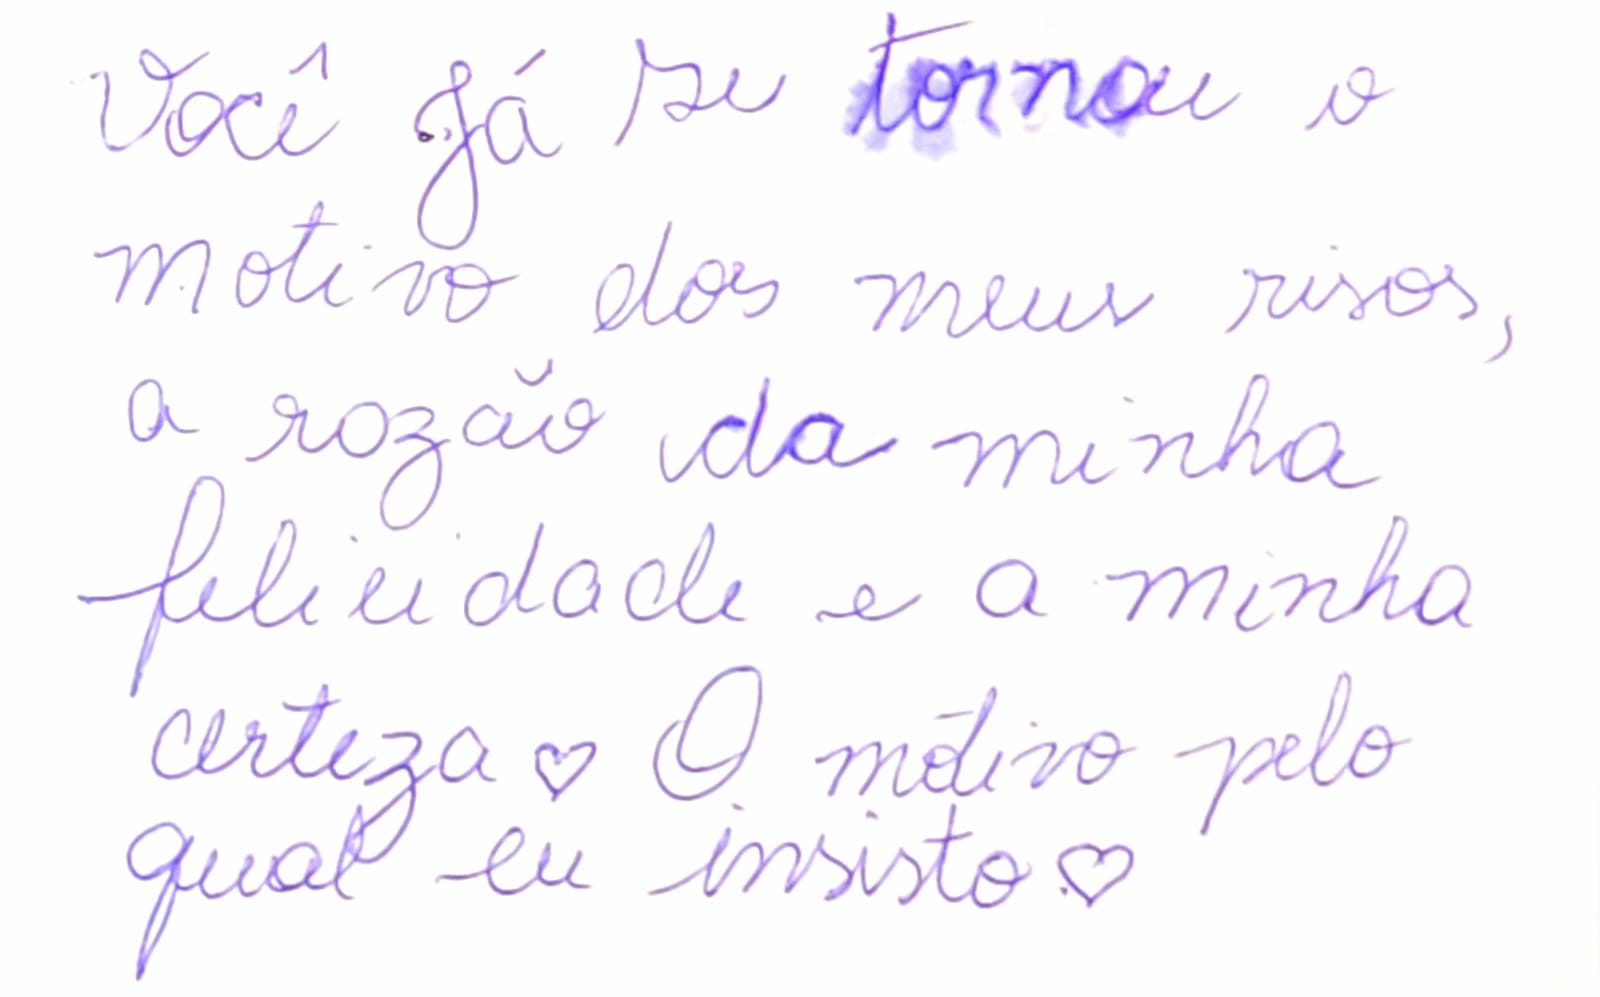 Você já se tornou o
motivo dos meus risos,
a razão da minha
felicidade e a minha
certeza ♡ O motivo pelo
qual eu insisto ♡